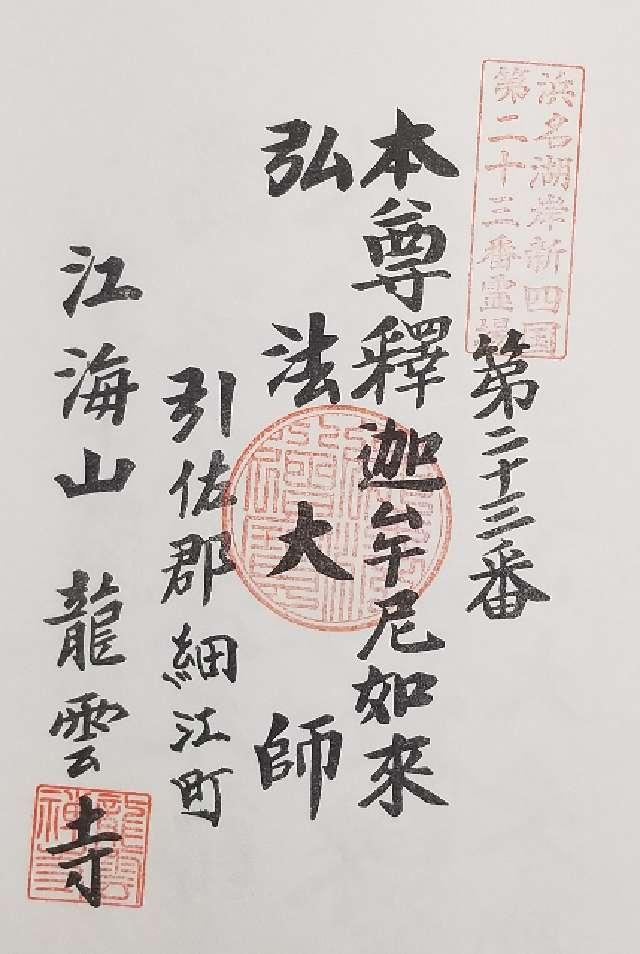 浜名湖岸新四国
第二十三番霊場
第二十三番
本尊釋迦牟尼如來
弘法大師
引佐郡細江町
江海山龍雲寺
龍雲
禅寺